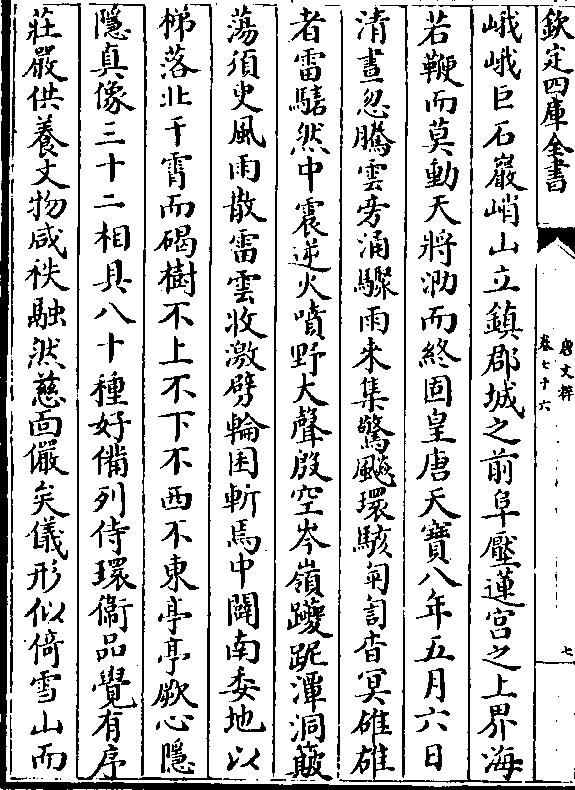 欽定四庫全書
唐文粹
卷七十六
七
峨峨巨石巖峭山立鎮郡城之前阜壓蓮宮之上界海
若鞭而莫動天將泐而終固皇唐天寶八年五月六日
清晝忽騰雲旁涌驟雨來集驚飈環駭訇訇杳冥碓碓
者雷驞然中震逆火噴野大聲殷空岑嶺躨跜渾洞簸
蕩須臾風雨散雷雲收激劈輪囷斬焉中闢南委地以
梯落北干霄而碣樹不上不下不西不東亭亭厥心隱
隱真像三十二相具八十種好備列侍環衞品覺有序
莊嚴供養文物咸秩融然慈面儼矣儀形似倚雪山而